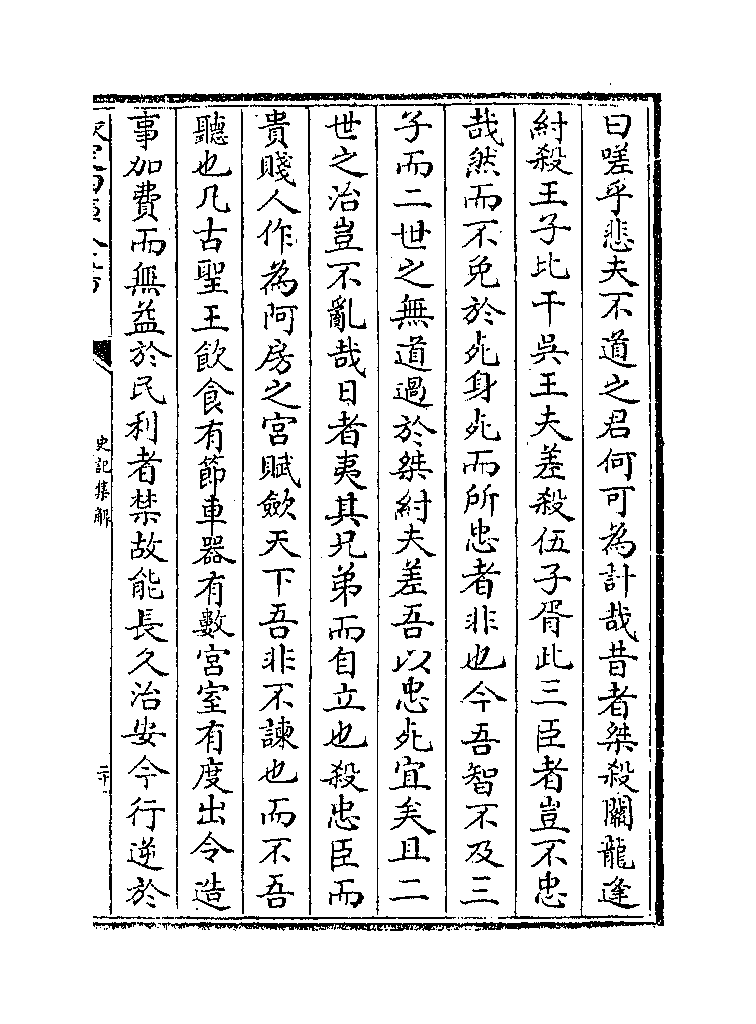 曰嗟乎悲夫不道之君何可為計哉昔者桀殺關龍逢
紂殺王子比干吳王夫差殺伍子胥此三臣者豈不忠
哉然而不免於死身死而所忠者非也今吾智不及三
子而二世之無道過於桀紂夫差吾以忠死宜矣且二
世之治豈不亂哉日者夷其兄弟而自立也殺忠臣而
貴賤人作為阿房之宮賦斂天下吾非不諫也而不吾
聽也凡古聖王飲食有節車器有數宮室有度出令造
事加費而無益於民利者禁故能長久治安今行逆於
史記集解